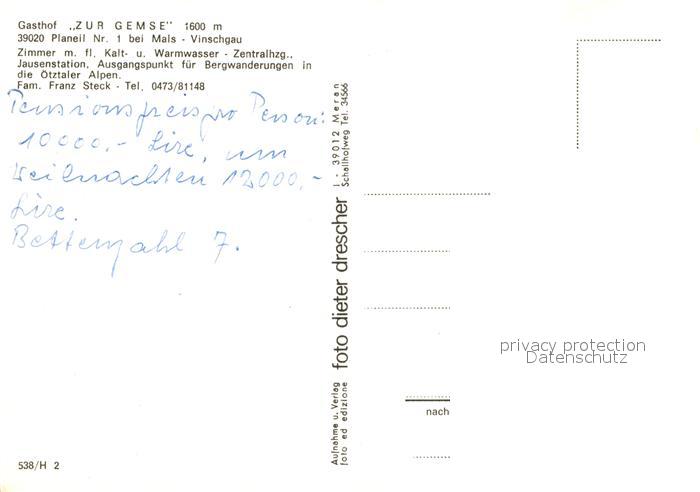 Gasthof „ZUR GEMSE" 1600 m
39020 Planeil Nr. 1 bei Mals - Vinschgau
Zimmer m. fl. Kalt- u. Warmwasser - Zentralhzg.,
Jausenstation, Ausgangspunkt für Bergwanderungen in
die Ötztaler Alpen.
Fam. Franz Steck - Tel. 0473/81148
Pensionspreis pro Person:
10000,- Lire, um
Weihnachten 12000,-
Lire.
Bettenzahl 7.
538/H 2
Aufnahme u. Verlag
foto ed edizione
foto dieter drescher
I - 39012 Meran
Schallhofweg Tel. 34566
nach
privacy protection
Datenschutz